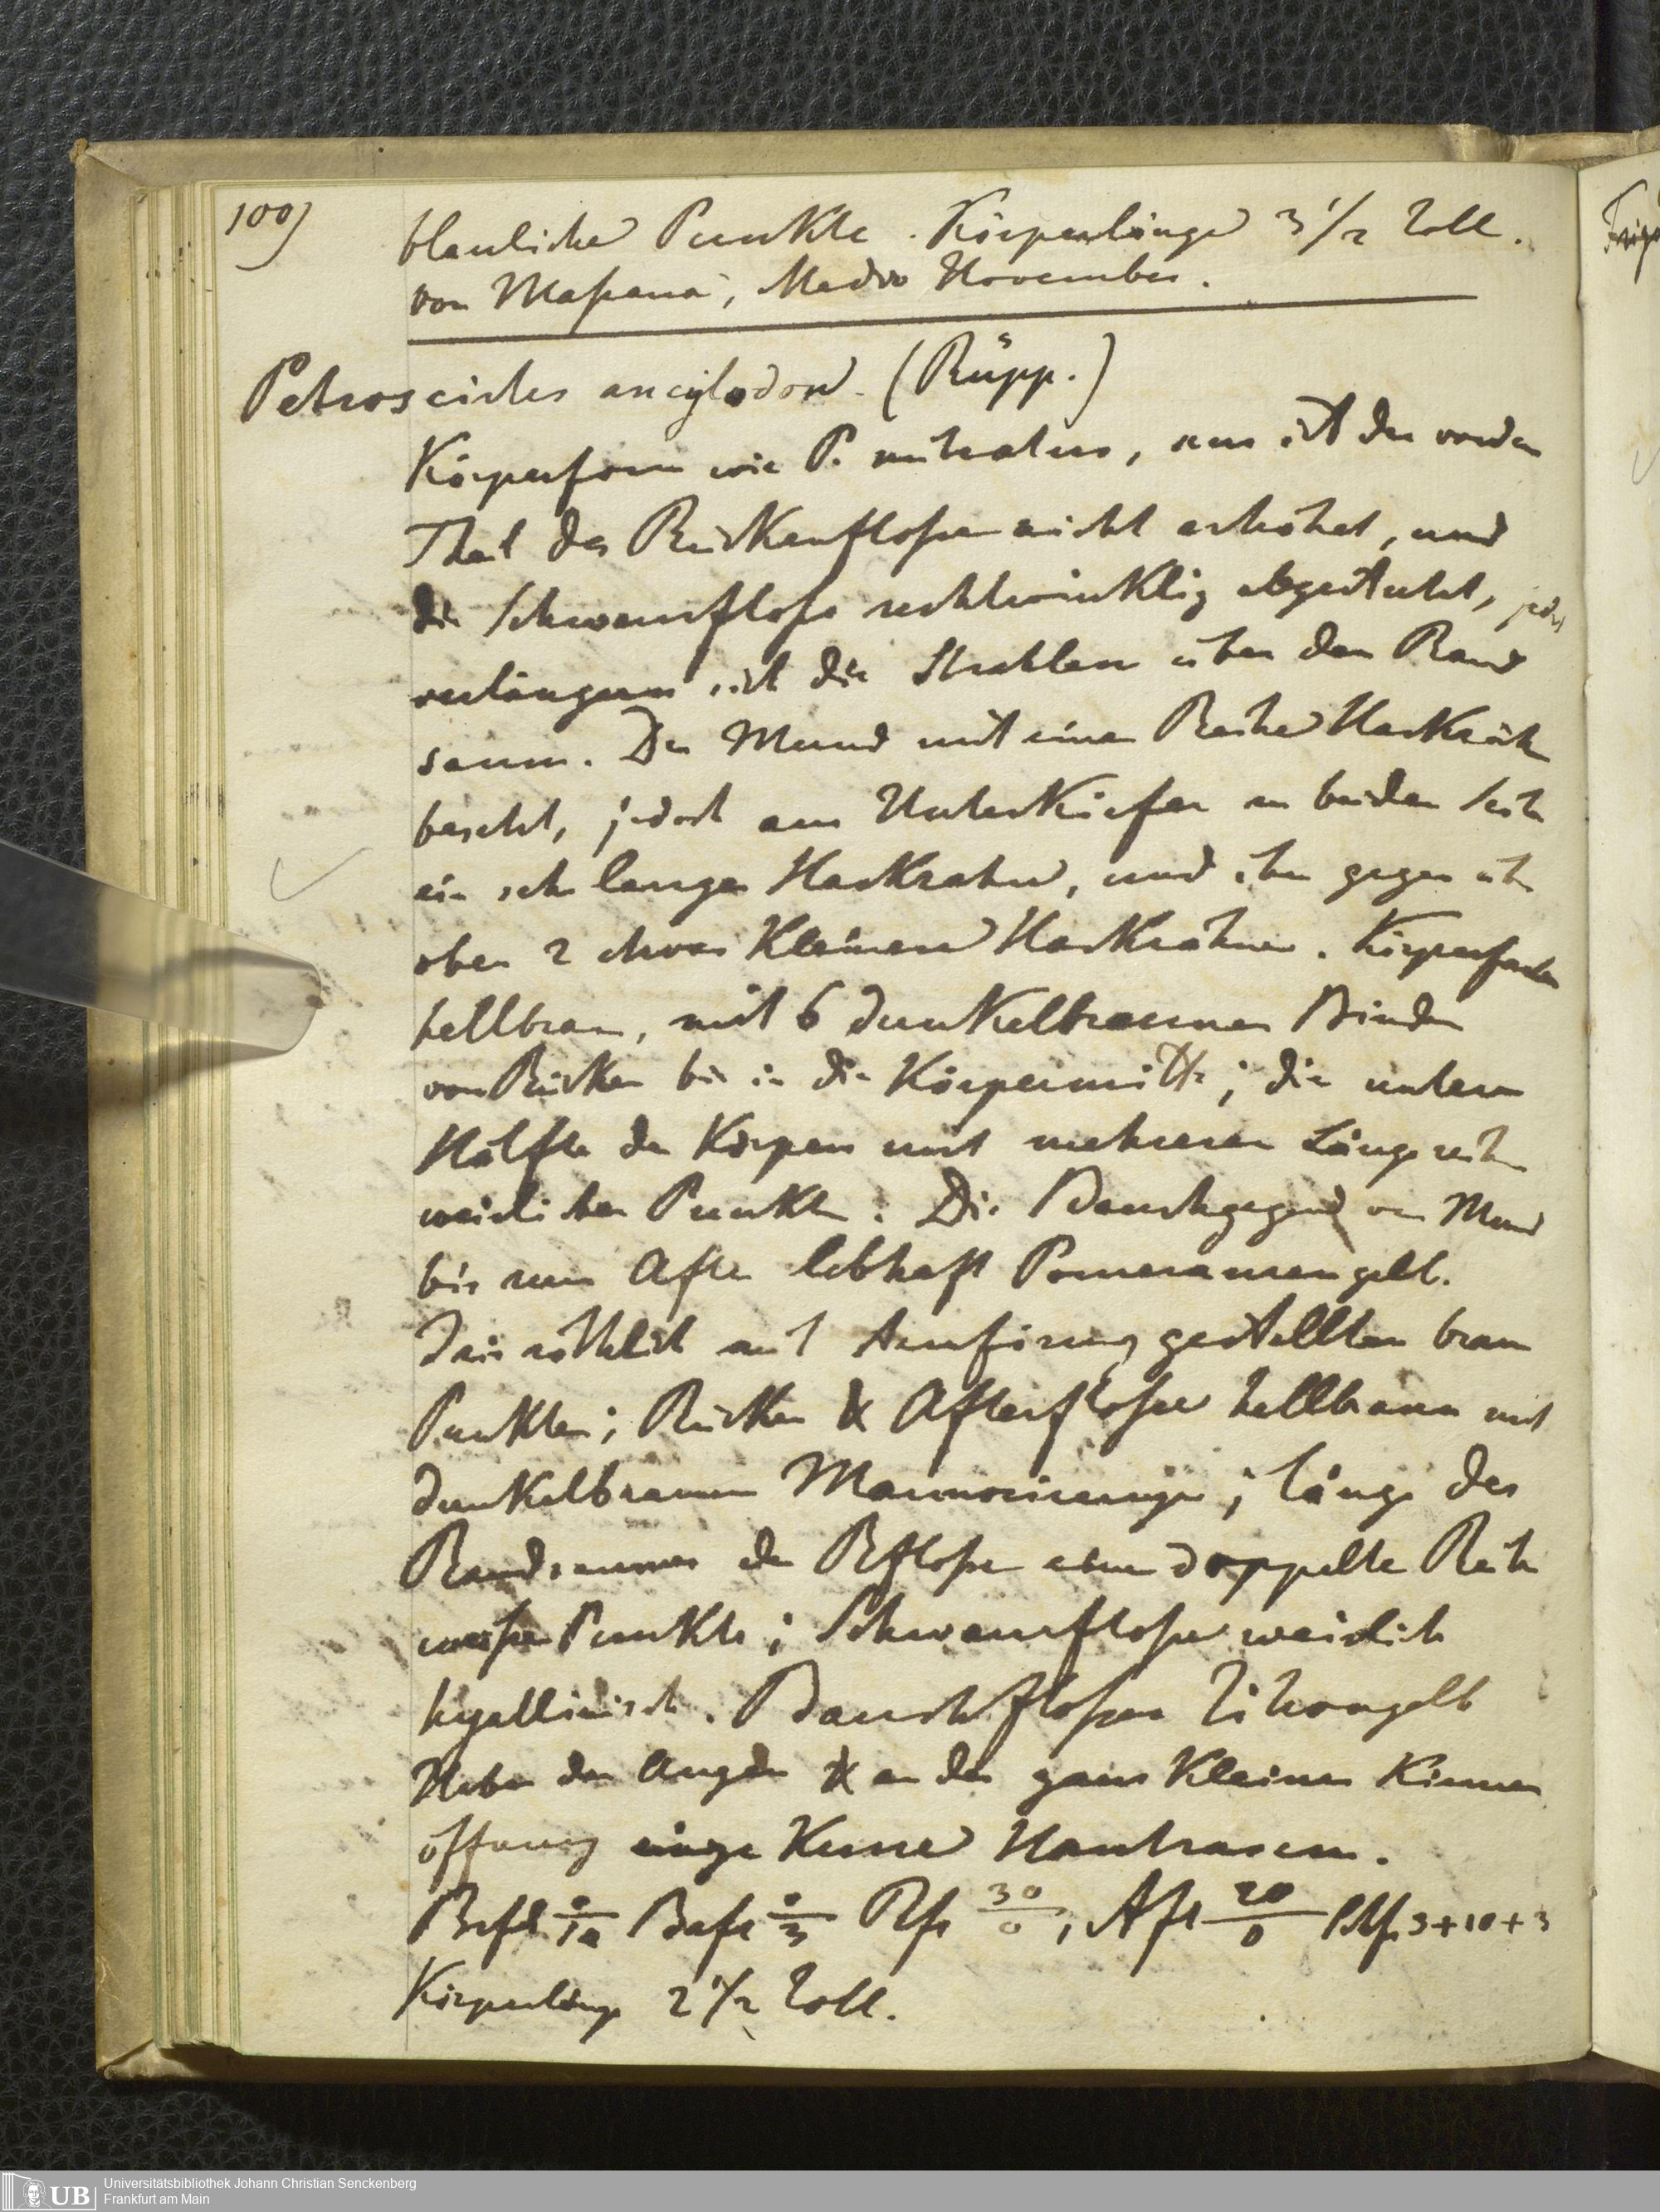 100)
blauliche Punkte. Körperlänge 3 1/2 Zoll.
von Maßaua, Medio November.
Petroscirtes ancylodon. (Rüpp.)
Körperform wie P. mitratus, nur ist der vordere
Theil der Rückenfloße nicht erhöhet, und
die Schwanzfloße rechtwinklig abgestutzt, jedoch
verlängern sich die Strahlen über den Rand
saum. Der Mund mit einer Reihe Hackzähne
besetzt, jedoch am Unterkiefer an beiden Seiten
ein sehr langer Hackzahn, und ihm gegen über
oben 2 etwas kleinere Hackzähne. Körperfarbe
hellbraun, mit 6 dunkelbraunen Binden
vom Rücken bis in die Körpermitte; die untere
Hälfte des Körpers mit mehreren Längsreihen
weislicher Punkte. Die Bauchgegend vom Mund
bis zum After lebhaft Pomeranzengelb.
Iris röthlich mit sternförmig gestellten braunen
Punkten; Rücken & Afterfloße hellbraun mit
dunkelbraunen Marmorirungen; längs des
Randsaumes der Rfloße eine doppelte Reihe
weißer Punkte; Schwanzfloße weislich
hyallinisch. Bauchfloßen Zitrongelb
Ueber den Augen & an der ganz kleinen Kiemen
öffnung einige kurze Hautfasern.
Brfl 0/12 Bafl 0/3 Rfl 30/0, Afl 20/0 Schfl 3+10+3
Körperlänge 2 1/2 Zoll.
Universitätsbibliothek Johann Christian Senckenberg
Frankfurt am Main
UB